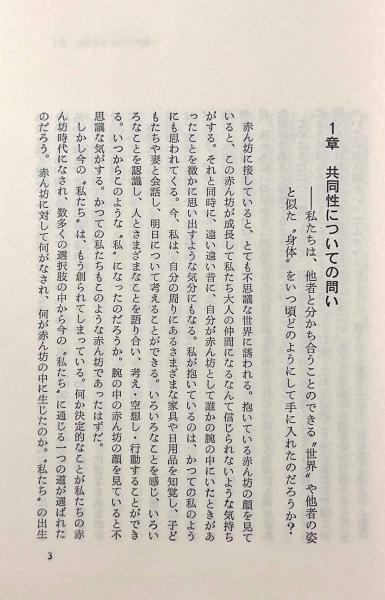 1章 共同性についての問い
――私たちは、他者と分かち合うことのできる〝世界〟や他者の姿
と似た〝身体〟をいつ頃どのようにして手に入れたのだろうか？
赤ん坊に接していると、とても不思議な世界に誘われる。抱いている赤ん坊の顔を見て
いると、この赤ん坊が成長して私たち大人の仲間になるなんて信じられないような気持ち
がする。それと同時に、遠い遠い昔に、自分が赤ん坊として誰かの腕の中にいたときがあ
ったことを微かに思い出すような気分にもなる。私が抱いているのは、かつての私のよう
にも思われてくる。今、私は、自分の周りにあるさまざまな家具や日用品を知覚し、子ど
もたちや妻と会話し、明日について考えることができる。いろいろなことを感じ、いろい
ろなことを認識し、人とさまざまなことを語り合い、考え・空想し・行動することができ
る。いつからこのような〝私〟になったのだろうか。腕の中の赤ん坊の顔を見ていると不
思議な気がする。かつての私たちもこのような赤ん坊であったはずだ。
しかし今の〝私たち〟は、もう創られてしまっている。何か決定的なことが私たちの赤
ん坊時代になされ、数多くの選択肢の中から今の〝私たち〟に通じる一つの道が選ばれた
のだろう。赤ん坊に対して何がなされ、何が赤ん坊の中に生じたのか。〝私たち〟の出生
3